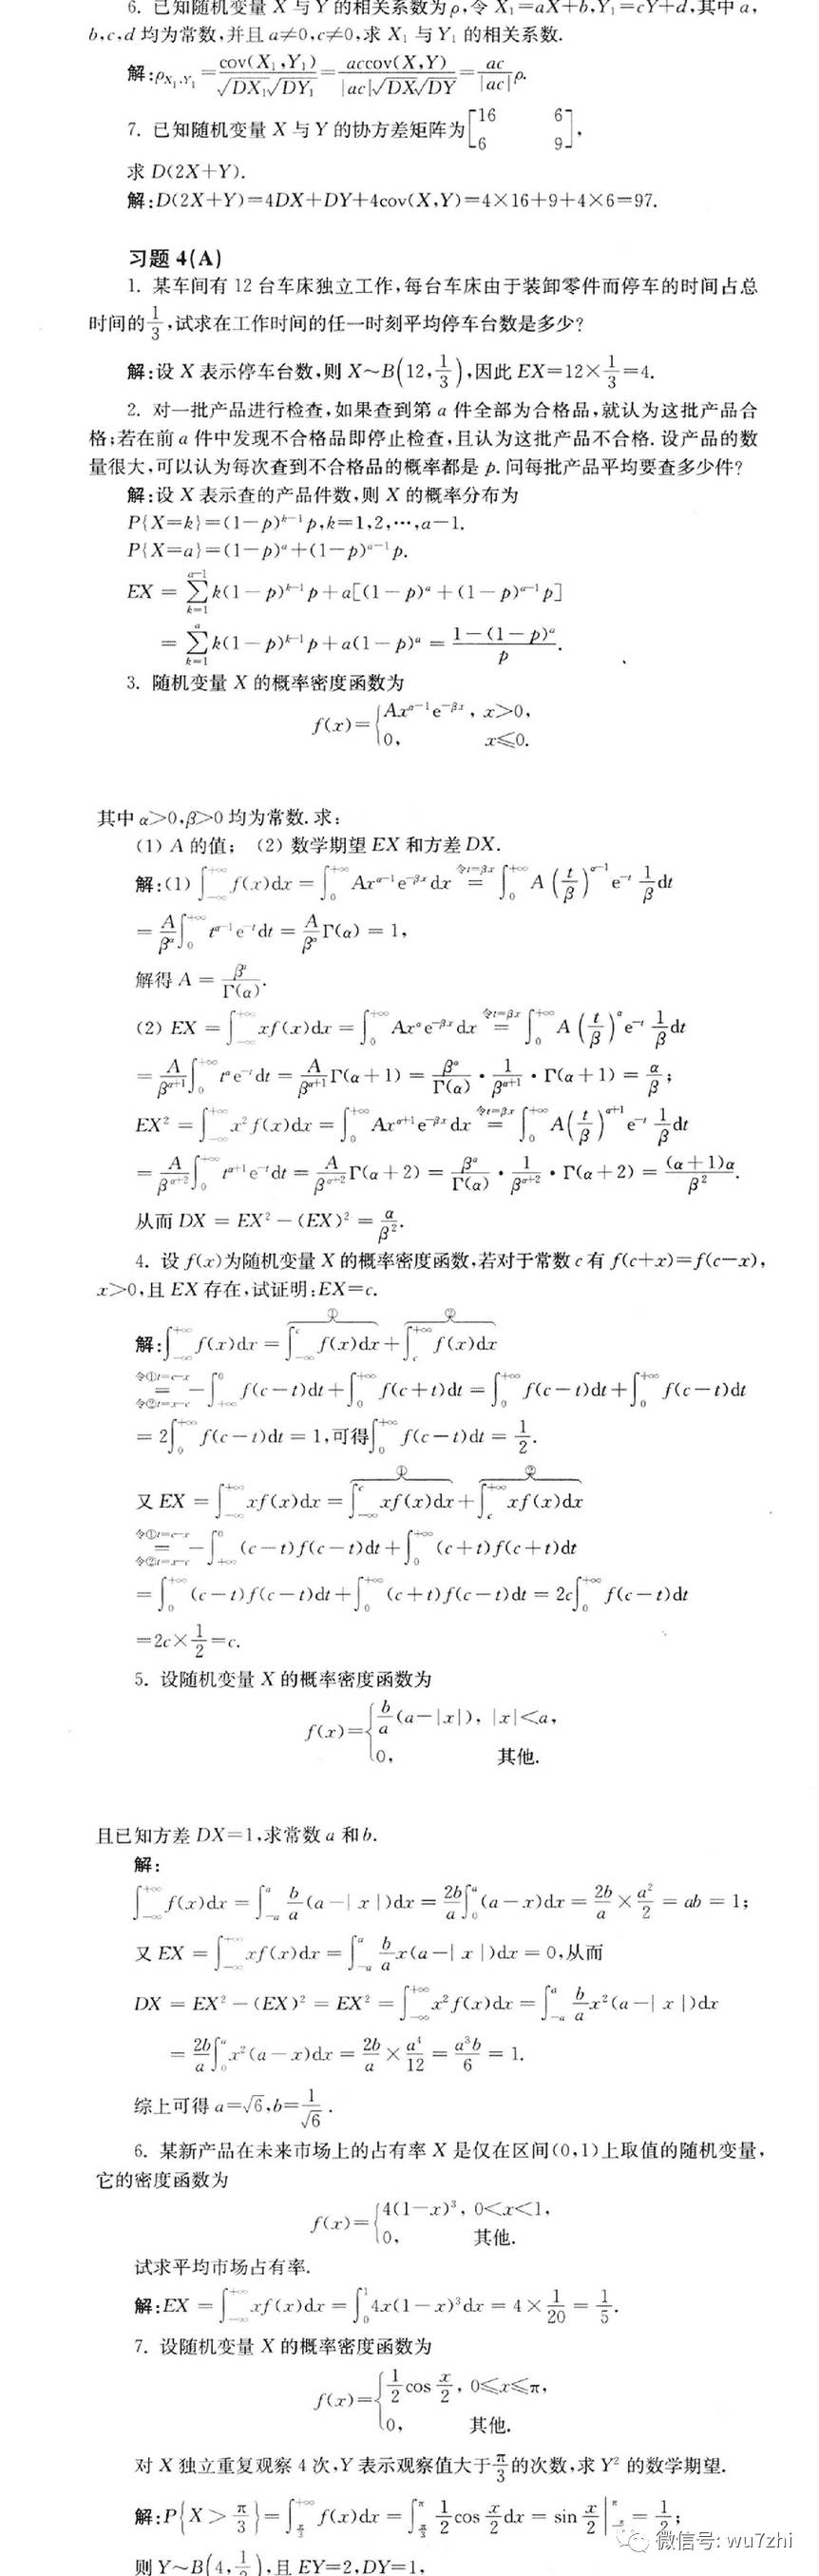 6. 已知随机变量 X 与 Y 的相关系数为ρ,令 X₁=aX+b,Y₁=cY+d,其中 a,
b,c,d 均为常数,并且 a≠0,c≠0,求 X₁ 与 Y₁ 的相关系数.
解:ρ_{X₁,Y₁}=cov(X₁,Y₁)/(√DX₁√DY₁)=accov(X,Y)/(|ac|√DX√DY)=ac/|ac| ρ.
7. 已知随机变量 X 与 Y 的协方差矩阵为[16 6; 6 9],
求 D(2X+Y).
解:D(2X+Y)=4DX+DY+4cov(X,Y)=4×16+9+4×6=97.
习题 4(A)
1. 某车间有 12 台车床独立工作,每台车床由于装卸零件而停车的时间占总
时间的1/3,试求在工作时间的任一时刻平均停车台数是多少?
解:设 X 表示停车台数,则 X~B(12,1/3),因此 EX=12×1/3=4.
2. 对一批产品进行检查,如果查到第 a 件全部为合格品,就认为这批产品合
格;若在前 a 件中发现不合格品即停止检查,且认为这批产品不合格. 设产品的数
量很大,可以认为每次查到不合格品的概率都是 p. 问每批产品平均要查多少件?
解:设 X 表示查的产品件数,则 X 的概率分布为
P{X=k}=(1−p)^{k−1}p,k=1,2,⋯,a−1.
P{X=a}=(1−p)^a+(1−p)^{a−1}p.
EX = ∑_{k=1}^{a−1} k(1−p)^{k−1}p+a[(1−p)^a+(1−p)^{a−1}p]
= ∑_{k=1}^{a} k(1−p)^{k−1}p+a(1−p)^a = (1−(1−p)^a)/p.
3. 随机变量 X 的概率密度函数为
f(x)={Ax^{α−1}e^{−βx}, x>0,
0, x≤0.
其中 α>0,β>0 均为常数. 求:
(1) A 的值; (2) 数学期望 EX 和方差 DX.
解:(1) ∫_{−∞}^{+∞} f(x)dx = ∫_0^{+∞} Ax^{α−1}e^{−βx}dx =(令t=βx) ∫_0^{+∞} A(t/β)^{α−1}e^{−t} 1/β dt
= A/β^α ∫_0^{+∞} t^{α−1}e^{−t}dt = A/β^α Γ(α) = 1,
解得 A = β^α/Γ(α).
(2) EX = ∫_{−∞}^{+∞} xf(x)dx = ∫_0^{+∞} Ax^α e^{−βx}dx =(令t=βx) ∫_0^{+∞} A(t/β)^α e^{−t} 1/β dt
= A/β^{α+1} ∫_0^{+∞} t^α e^{−t}dt = A/β^{α+1} Γ(α+1) = β^α/Γ(α) • 1/β^{α+1} • Γ(α+1) = α/β;
EX² = ∫_{−∞}^{+∞} x²f(x)dx = ∫_0^{+∞} Ax^{α+1}e^{−βx}dx =(令t=βx) ∫_0^{+∞} A(t/β)^{α+1}e^{−t} 1/β dt
= A/β^{α+2} ∫_0^{+∞} t^{α+1}e^{−t}dt = A/β^{α+2} Γ(α+2) = β^α/Γ(α) • 1/β^{α+2} • Γ(α+2) = (α+1)α/β².
从而 DX = EX² − (EX)² = α/β².
4. 设 f(x)为随机变量 X 的概率密度函数,若对于常数 c 有 f(c+x)=f(c−x),
x>0,且 EX 存在,试证明:EX=c.
① ②
解:∫_{−∞}^{+∞} f(x)dx = ∫_{−∞}^{c} f(x)dx+∫_c^{+∞} f(x)dx
令①t=c−x 令②t=x−c = −∫_{+∞}^0 f(c−t)dt+∫_0^{+∞} f(c+t)dt = ∫_0^{+∞} f(c−t)dt+∫_0^{+∞} f(c−t)dt
= 2∫_0^{+∞} f(c−t)dt = 1,可得∫_0^{+∞} f(c−t)dt = 1/2.
① ②
又 EX = ∫_{−∞}^{+∞} xf(x)dx = ∫_{−∞}^{c} xf(x)dx+∫_c^{+∞} xf(x)dx
令①t=c−x 令②t=x−c = −∫_{+∞}^0 (c−t)f(c−t)dt+∫_0^{+∞} (c+t)f(c+t)dt
= ∫_0^{+∞} (c−t)f(c−t)dt+∫_0^{+∞} (c+t)f(c−t)dt = 2c∫_0^{+∞} f(c−t)dt
=2c×1/2=c.
5. 设随机变量 X 的概率密度函数为
f(x)={b/a (a−|x|), |x|<a,
0, 其他.
且已知方差 DX=1,求常数 a 和 b.
解:
∫_{−∞}^{+∞} f(x)dx = ∫_{−a}^{a} b/a (a−|x|)dx = 2b/a ∫_0^a (a−x)dx = 2b/a × a²/2 = ab = 1;
又 EX = ∫_{−∞}^{+∞} xf(x)dx = ∫_{−a}^{a} b/a x(a−|x|)dx = 0,从而
DX = EX² − (EX)² = EX² = ∫_{−∞}^{+∞} x²f(x)dx = ∫_{−a}^{a} b/a x²(a−|x|)dx
= 2b/a ∫_0^a x²(a−x)dx = 2b/a × a⁴/12 = a³b/6 = 1.
综上可得 a=√6,b=1/√6.
6. 某新产品在未来市场上的占有率 X 是仅在区间(0,1)上取值的随机变量,
它的密度函数为
f(x)={4(1−x)³, 0<x<1,
0, 其他.
试求平均市场占有率.
解:EX = ∫_{−∞}^{+∞} xf(x)dx = ∫_0^1 4x(1−x)³dx = 4×1/20 = 1/5.
7. 设随机变量 X 的概率密度函数为
f(x)={1/2 cos x/2, 0≤x≤π,
0, 其他.
对 X 独立重复观察 4 次,Y 表示观察值大于π/3的次数,求 Y² 的数学期望.
解:P{X>π/3}=∫_{π/3}^{+∞} f(x)dx = ∫_{π/3}^{π} 1/2 cos x/2 dx = sin x/2 |_{π/3}^{π} = 1/2;
则 Y~B(4,1/2),且 EY=2,DY=1,
微信号: wu7zhi